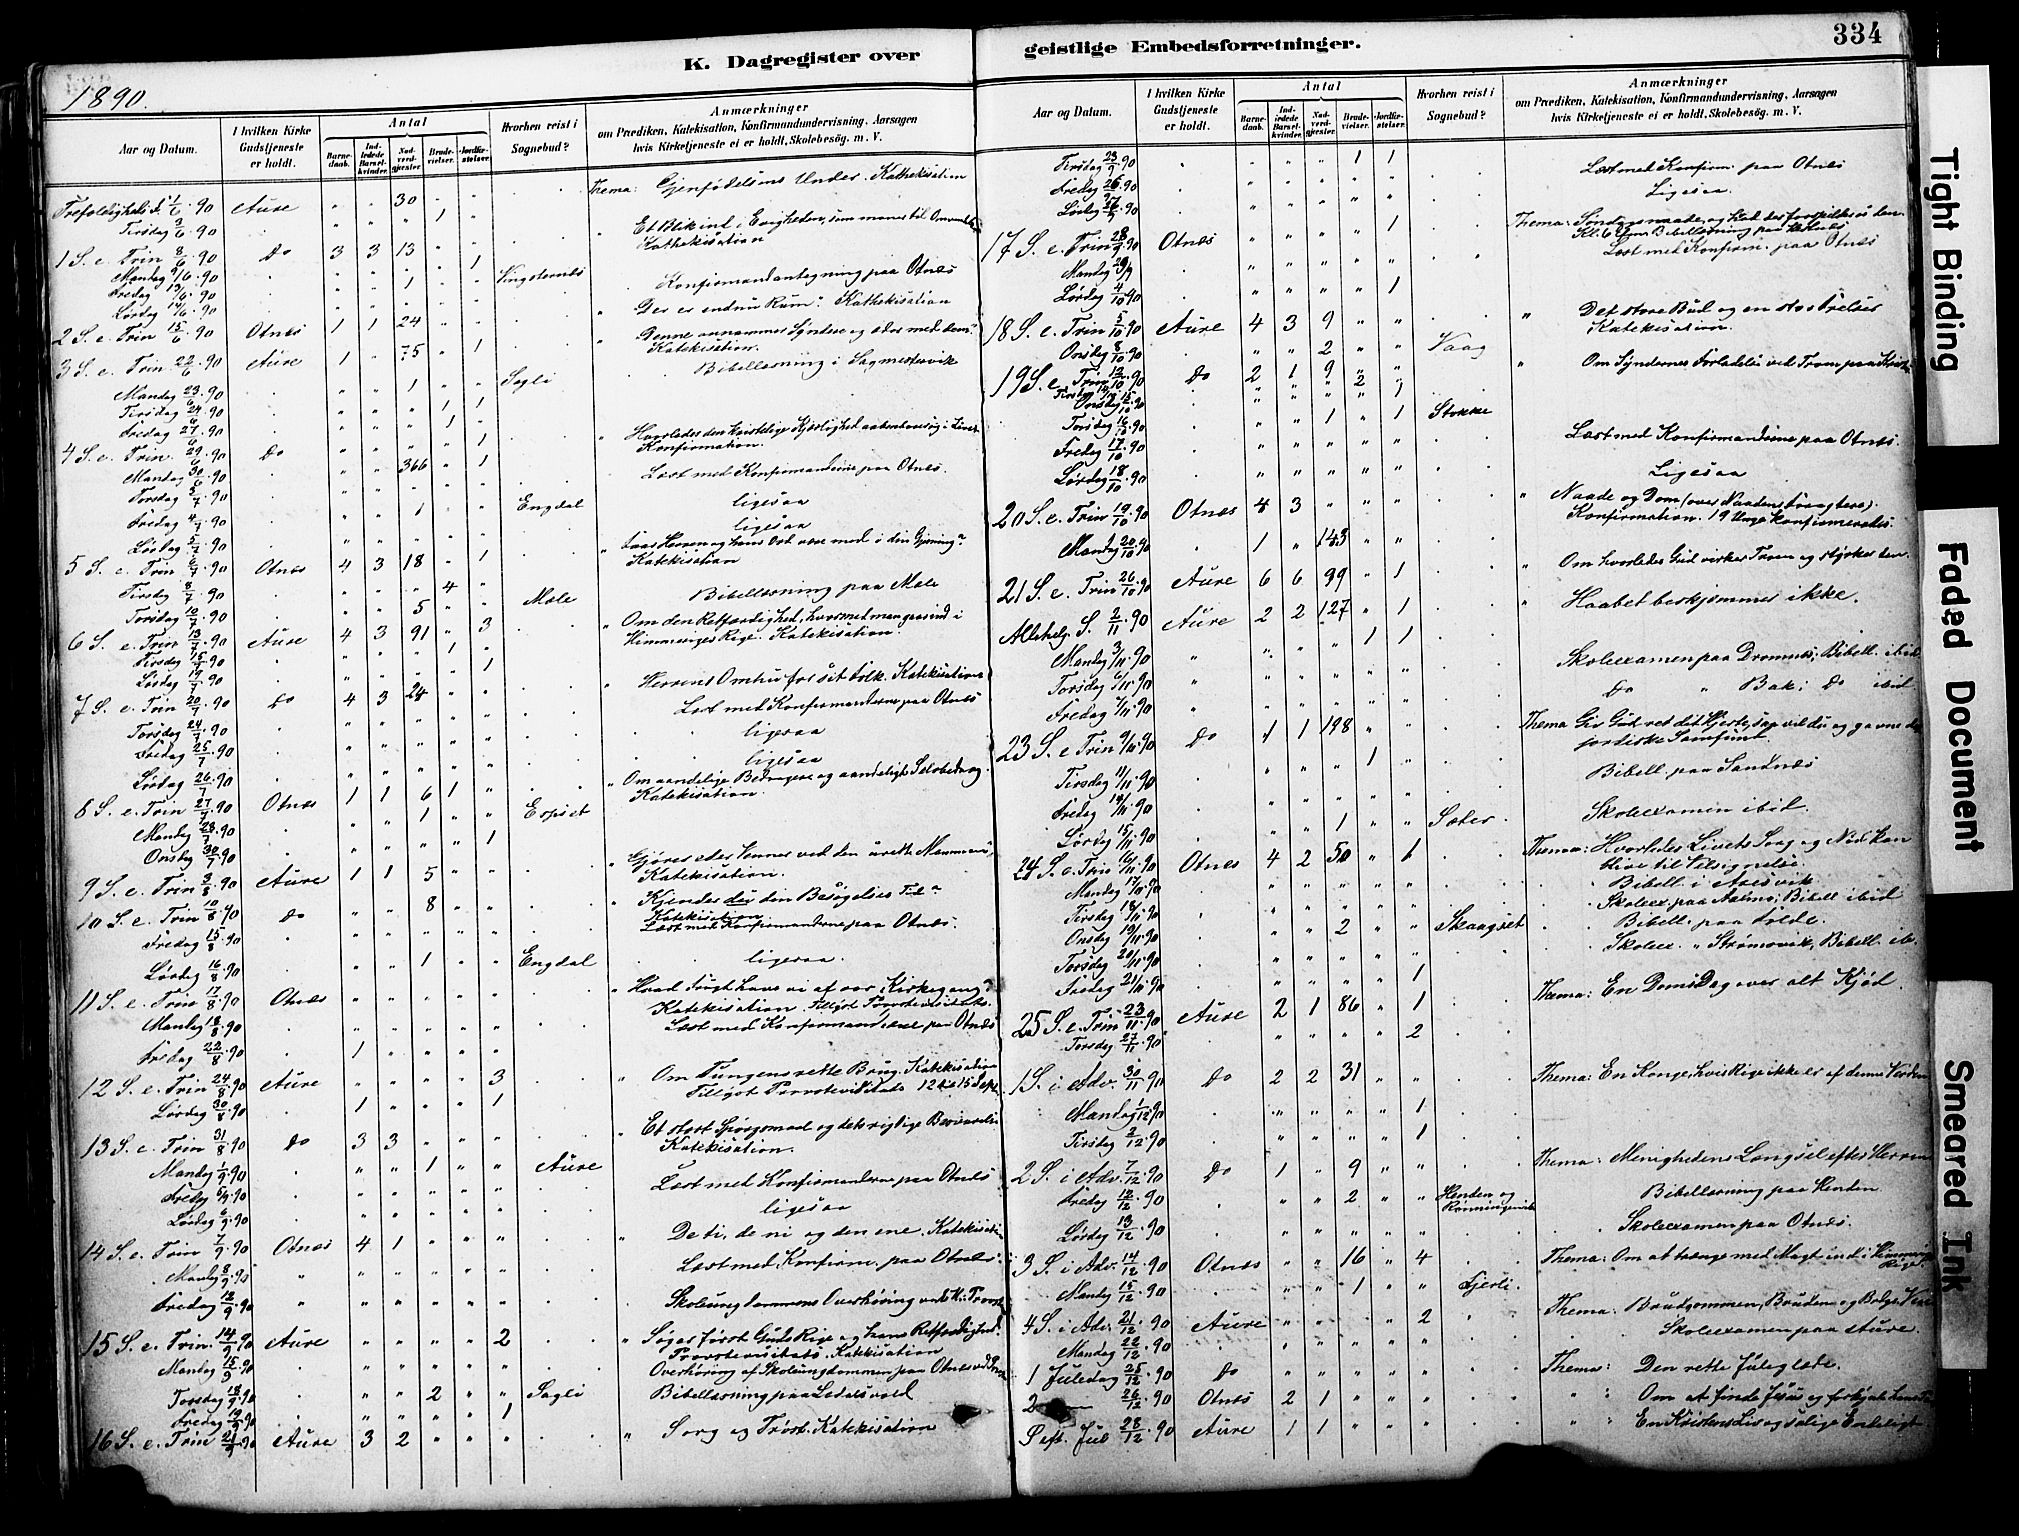 334
K. Dagregister over geistlige Embedsforretninger.
1890.
Aar og Datum.
I hvilken Kirke Gudstjeneste er holdt.
Antal
Barnedaab.
Indledede Barselkvinder.
Nadverdgjester.
Brudevielser.
Jordfæstelser.
Hvorhen reist i Sognebud?
Anmærkninger
om Prædiken, Katekisation, Konfirmandundervisning, Aarsagen
hvis Kirketjeneste ei er holdt, Skolebesøg. m. V.
Trefoldigheds f. 1/6. 90 Aure " " 30 Thema: Gjenfødelsens Under. Kathekisation
Tirsdag 3/6. 90 " " " 1 "
1 S. e. Trin 8/6. 90 Do 3 3 13 " " Et Blik ind i Evigheden, som maner til
Kathekisation
Mandag 9/6. 90 1
Fredag 13/6. 90 1 Vingsternes
Lørdag 14/6. 90 Konfirmandantagning paa Otnæs
2 S. e. Trin 15/6. 90 Otnæs 1 1 24 " " " Der er endnu Rum". Kathekisation
3 S. e. Trin. 22/6. 90 Aure 1 " 75 " 1 " Denne annammer Syndere og æder med dem"
Katekisation.
Mandag 23/6. 90 " " 1 " " Sagli Bibellæsning i
Tirsdag 24/6. 90 " " " 1 1
Fredag 27/6. 90 " " " 1 "
4 S. e. Trin. 29/6. 90 Do " " 366 " 1 " Hvorledes den kristelige Kjærlighed
Konfirmation.
Mandag 30/6. 90
Torsdag 3/7. 90 Læst med Konfirmanderne paa Otnæs.
Fredag 4/7. 90 1 Engdal ligesaa
Lørdag 5/7. 90 ligesaa
5 S. e. Trin 6/7. 90 Otnæs 4 3 18 " 1 " Herren og hans Ord være med i din Gjerning"
Katekisation
Tirsdag 8/7. 90 " " " 4 "
Torsdag 10/7. 90 " " 5 " " Mæle Bibellæsning paa Mæle
6 S. e. Trin 13/7. 90 Aure 4 3 91 " 3 " Om den Retfærdighed, hvormed man gaar ind i
Himmeriges Rige. Katekisation.
Tirsdag 15/7. 90 1
Lørdag 19/7. 90 1
7 S. e. Trin 20/7. 90 Do 4 3 24 " " " Herrens Omhu for sit Folk. Katekisation
Torsdag 24/7. 90 Læst med Konfirmanderne paa Otnæs
Fredag 25/7. 90 ligesaa
Lørdag 26/7. 90 ligesaa
8 S. e. Trin 27/7. 90 Otnæs 1 1 6 1 " " Om aandelige Bedragere og aandeligt Selvbedrag.
Katekisation.
Mandag 28/7. 90 " " 1 " "
Onsdag 30/7. 90 " " " " 1
9 S. e. Trin 3/8. 90 Aure 1 1 5 " " " Gjører eder Venner ved den urette Mammon"
Katekisation.
10 S. e. Trin 10/8. 90 Do " " 8 " " " Kjendes der den Besøgelses Tid"
Katekisation
Fredag 15/8. 90 Læst med Konfirmanderne paa Otnæs.
Lørdag 16/8. 90 " " 1 " " Engdal ligesaa.
11 S. e. Trin 17/8. 90 Otnæs " Hvad Frugt have vi af vor Kirkegang?
Katekisation. Tillyst
Mandag 18/8. 90 Læst med Konfirmanderne paa Otnæs
Fredag 22/8. 90 1 " " " "
12 S. e. Trin 24/8. 90 Aure " " " " 3 " Om Tungens rette Brug. Katekisation
Tillyst 12 til 15 Sept.
Lørdag 30/8. 90 1 " " " 1
13 S. e. Trin 31/8. 90 Do 3 3 " " " " Et stort Spørgsmaal og dets rigtige
Katekisation.
Mandag 1/9. 90 " " 1 " " Aure
Fredag 5/9. 90 Læst med Konfirmanderne paa Otnæs
Lørdag 6/9. 90 ligesaa
14 S. e. Trin 7/9. 90 Otnæs 4 1 " " " " De ti, de ni og den ene. Katekisation
Mandag 8/9. 90 Læst med Konfirm. paa Otnæs.
Fredag 12/9. 90 Skoleungdommens Overhøring ved
15 S. e. Trin. 14/9. 90 Aure " " " " 2 " Søger først Guds Rige og hans Retfærdighed.
Katekisation
Mandag 15/9. 90 Overhøring af Skoleungdommen paa Otnæs
Torsdag 18/9. 90 " " 2 " " Sagli Bibellæsning paa
Fredag 19/9. 90 " " " " 1
16 S. e. Trin 21/9. 90 Aure 3 2 " " " " Sorg og Trøst. Katekisation
Aar og Datum.
I hvilken Kirke Gudstjeneste er holdt.
Antal
Barnedaab.
Indledede Barselkvinder.
Nadverdgjester.
Brudevielser.
Jordfæstelser.
Hvorhen reist i Sognebud?
Anmærkninger
om Prædiken, Katekisation, Konfirmandundervisning, Aarsagen
hvis Kirketjeneste ei er holdt. Skolebesøg. m. V.
Tirsdag 23/9. 90 " " " 1 1
Fredag 26/9. 90 Læst med Konfirm. paa Otnæs
Lørdag 27/9. 90 Ligesaa
17 S. e. Trin 28/9. 90 Otnæs " " " " 1 Thema:
Mandag 29/9 Læst med Konfirm. paa Otnæs
Lørdag 4/10. 90 " " " " 1
18 S. e. Trin 5/10. 90 Aure 4 3 9 " " " Det store Bud og en stor Frelser
Katekisation.
Onsdag 8/10. 90 " " 2 " " Vaag
19 S. e. Trin 12/10. 90 Do 2 1 9 " " " Om Syndernes Forladelse ved Troen paa
Tirsdag 14/10 2
Onsdag 15/10. 90 1
Torsdag 16/10. 90 " " 1 " 1 Stokke
Fredag 17/10. 90 Læst med Konfirmanderne paa Otnæs.
Lørdag 18/10. 90 Ligesaa
20 S. e. Trin 19/10. 90 Otnæs 4 3 " " " " Naade og Dom (over Naadens Foragtere).
Konfirmation. 19 Unge konfirmeredes.
Mandag 20/10. 90 1 " 143 " "
21 S. e. Trin 26/10. 90 Aure 6 6 99 " 1 " Om hvorledes Gud virker Troen og styrker den.
Allehelg. S. 2/11. 90 Aure 2 2 127 " 1 " Haabet beskjæmmer ikke.
Mandag 3/11. 90 " " " 1 1
Torsdag 6/11. 90 Skoleexamen paa Dromnes; Bibell. ibid
Fredag 7/11. 90 Do " Bak; Do ibid
23 S. e. Trin 9/11. 90 Do 1 1 198 " " Thema Giv Gud ret dit Hjerte, saa vil du og gavne det
jordiske Samfund.
Tirsdag 11/11. 90 " " " 1 "
Fredag 14/11. 90 Bibell. paa Sandnæs
Lørdag 15/11. 90 " " 1 " " Sæter. Skoleexamen ibid.
24 S. e. Trin 16/11. 90 Otnæs 4 2 50 " 1 Thema: Hvorledes Livets Sorg og Nød kan
blive til Velsignelse.
Mandag 17/11. 90 Bibell. i
Tirsdag 18/11. 90 Skoleex. paa Aalmo; Bibell ibid
Onsdag 19/11. 90 " " 2 " " Skaagset Bibell. paa
Torsdag 20/11. 90 Skoleex. " Strømsvik, Bibell. ib.
Fredag 21/11. 90 1
25 S. e. Trin 23/11. 90 Aure 2 1 86 " 1 Thema: En Doms Dag over alt Kjød
Torsdag 27/11. 90 2
1 S. i Adv. 30/11. 90 Do 2 2 31 " " Thema: En Konge, hvis Rige ikke er af denne Verden
Mandag 1/12. 90 " " " " 1
Tirsdag 2/12. 90 " " " " 1
2 S. i Adv. 7/12. 90 Do 1 " 9 " " Thema: Menighedens Længsel efter Herren
Fredag 12/12. 90 " " 2 " " Henden og
Bibellæsning paa Henden
Lørdag 13/12. 90 Skoleexamen paa Otnæs.
3 S. i Adv. 14/12. 90 Otnæs " " 16 " 4 Thema: Om at trænge med Magt ind i Himmeriges
Rige.
Mandag 15/12. 90 " " 1 " " Gjerli.
4 S. i Adv. 21/12. 90 Aure " " " " 2 Thema: Brudgommen, Bruden og
Mandag 22/12. 90 Skoleexamen paa Aure.
1 Juledag 25/12. 90 Do Thema: Den rette Juleglæde.
2 — 26/12. 90 Otnæs 2 1 " " " " Om at finde Jesus og
S eft. Jul 28/12. 90 Aure 1 1 " " " " En Kristens Liv og salige Endeligt
Tight Binding
Faded Document
Smeared Ink